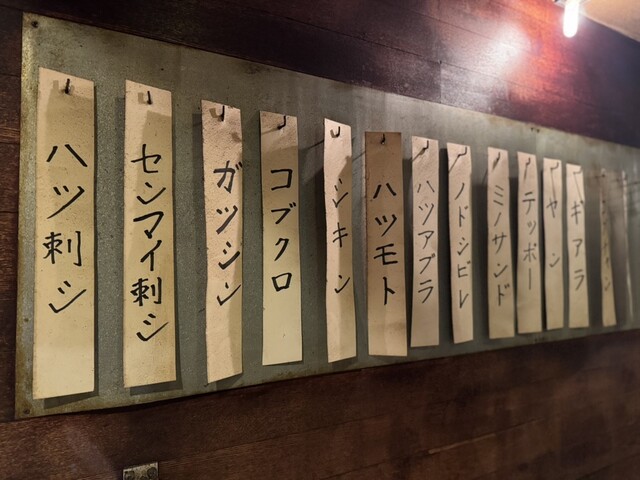 ハツ刺シ
センマイ刺シ
ガツシン
コブクロ
シキン
ハツモト
ハツアブラ
ノドシビレ
ミノサンド
テッポー
ヤン
ギアラ